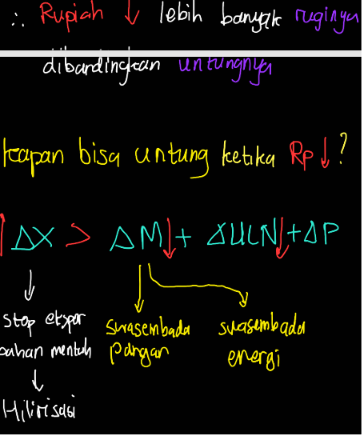 ∴ Rupiah ↓ lebih banyak ruginya
dibandingkan untungnya
kapan bisa untung ketika Rp ↓ ?
ΔX > ΔM↓ + ΔULN↓ + ΔP
stop ekspor
bahan mentuh
↓
Hilirisasi
swasembada
pangan
swasembada
energi